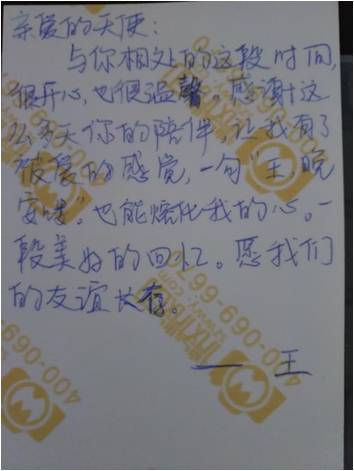 亲爱的天使：
与你相处的这段时间，
很开心，也很温馨。感谢这
么多天你的陪伴，让我有了
被爱的感觉，一句“王，晚
安哇”也能熔化我的心。一
段美好的回忆。愿我们
的友谊长存。
—— 王
400-069-99